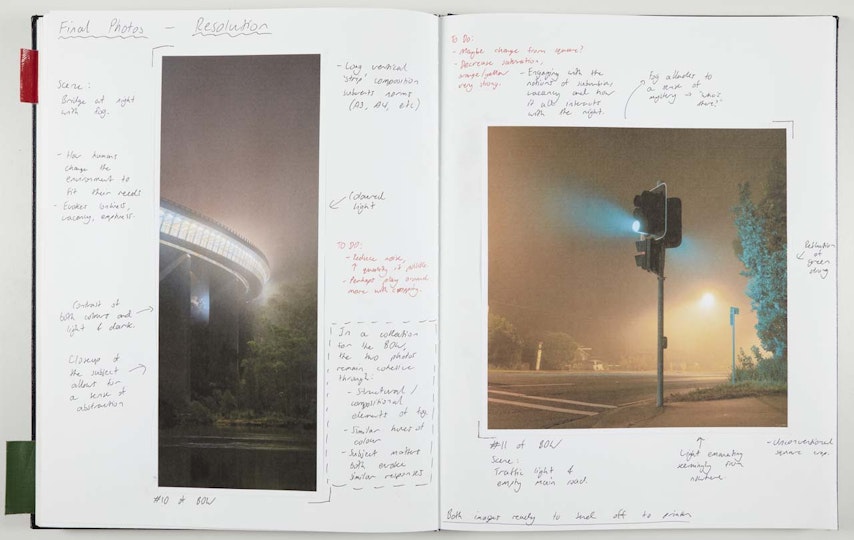 Final Photos - Resolution
Scene:
Bridge at night
with fog.
- How humans
change the
environment to
fit their needs
- Evokes
vacancy, emptiness
Contrast of
both colours and
light & dark.
Closeup of
the subject
allows for
a sense of
abstraction
#10 of BOW
- Long vertical
'strip' composition
subverts norms
(A3, A4, etc)
Coloured
light
TO DO:
- Reduce noise,
↑ quality if possible
- Perhaps play around
more with cropping.
In a collection
for the BOW,
the two photos
remain cohesive
through:
- Structural /
compositional
elements of fog.
- Similar hues of
colour
- Subject matters
both evoke
similar responses
TO DO:
- Maybe change from square?
- Decrease saturation,
orange/yellow
very strong.
- Engaging with the
notions of suburban
vacancy and how
it all interacts
with the night.
Fog alludes to
a sense of
mystery → "who's
there?"
Reflection
of
green
strong
#11 of BOW
Scene:
Traffic light &
empty main road.
Light emanating
seemingly from
nowhere.
- Unconventional
square crop.
Both images ready to send off to printer